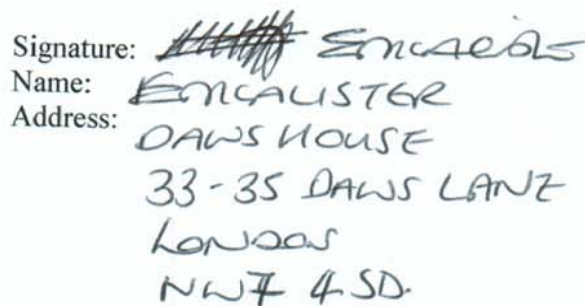 Signature:
Name: E MCALISTER
Address:
DAWS HOUSE
33-35 DAWS LANE
LONDON
NW7 4SD.